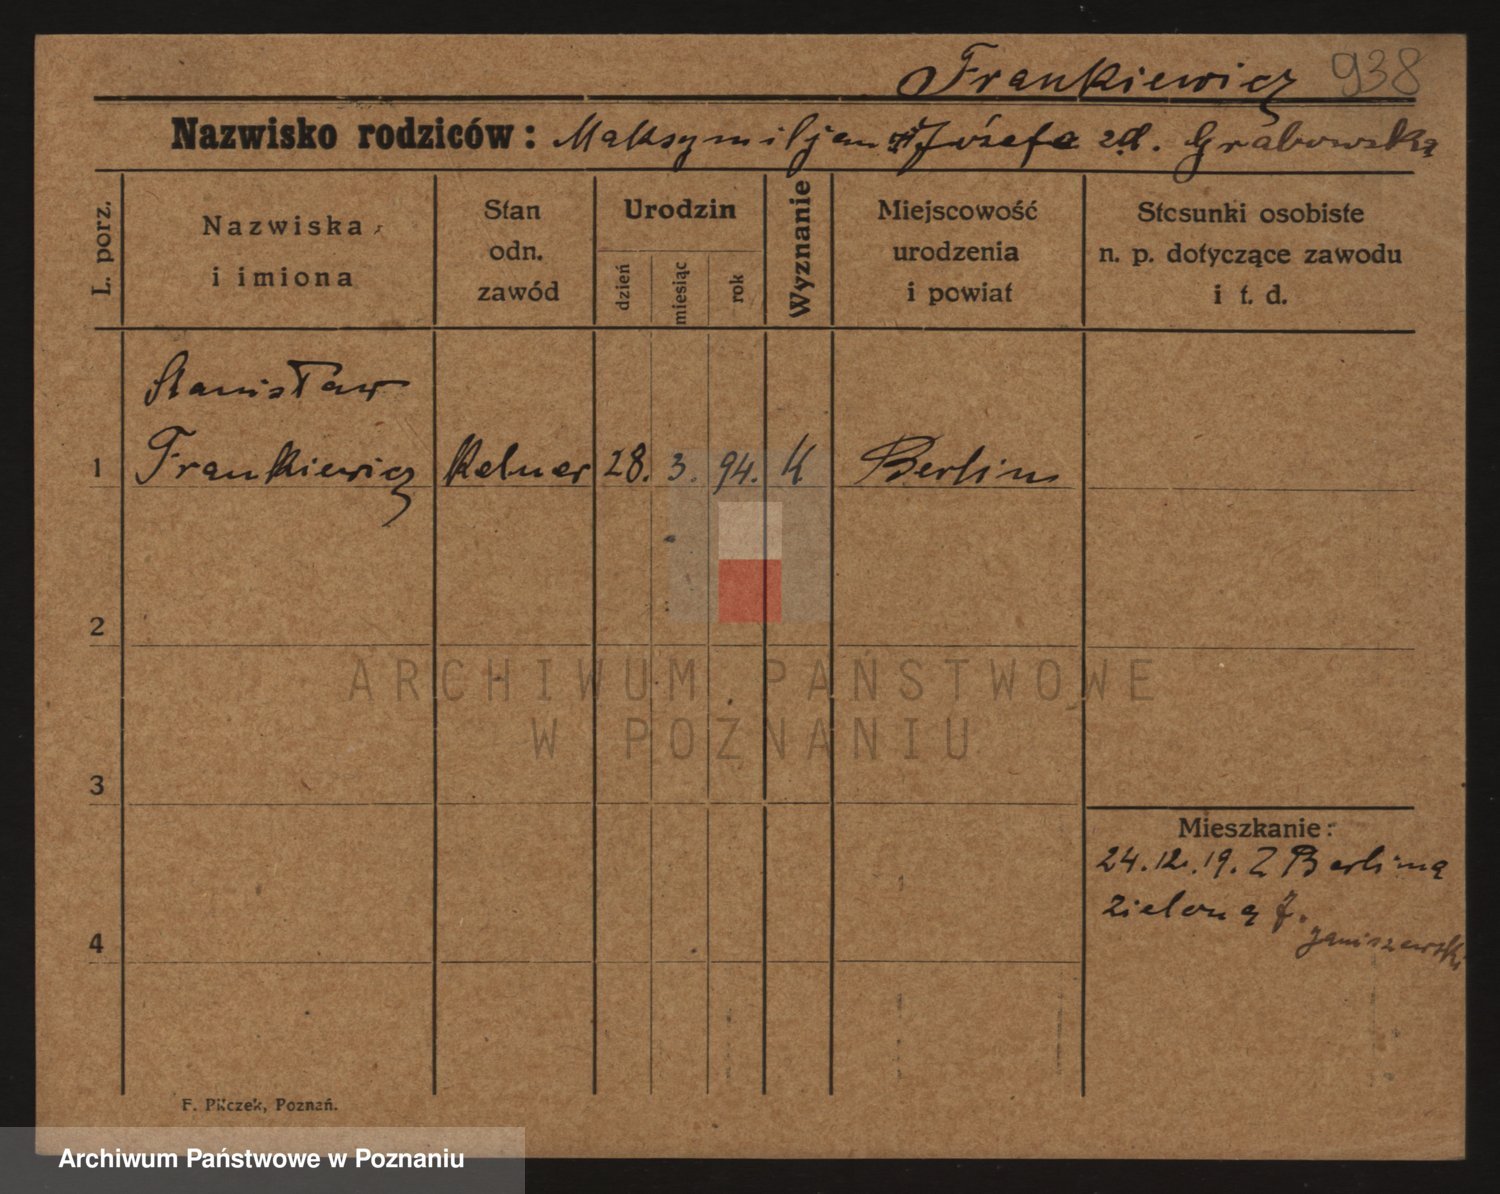 Frankiewicz 938
Nazwisko rodziców: Maksymiljan i Józefa zd. Grabowska
L. porz.
Nazwiska
i imiona
Stan
odn.
zawód
Urodzin
dzień
miesiąc
rok
Wyznanie
Miejscowość
urodzenia
i powiat
Stosunki osobiste
n. p. dotyczące zawodu
i t. d.
Stanisław
1 Frankiewicz Kelner 28. 3. 94. K Berlin
2
ARCHIWUM PAŃSTWOWE
W POZNANIU
3
Mieszkanie:
24.12.19. Z Berlina
Zielona 7.
Janiszewski
4
F. Pilczek, Poznań.
Archiwum Państwowe w Poznaniu